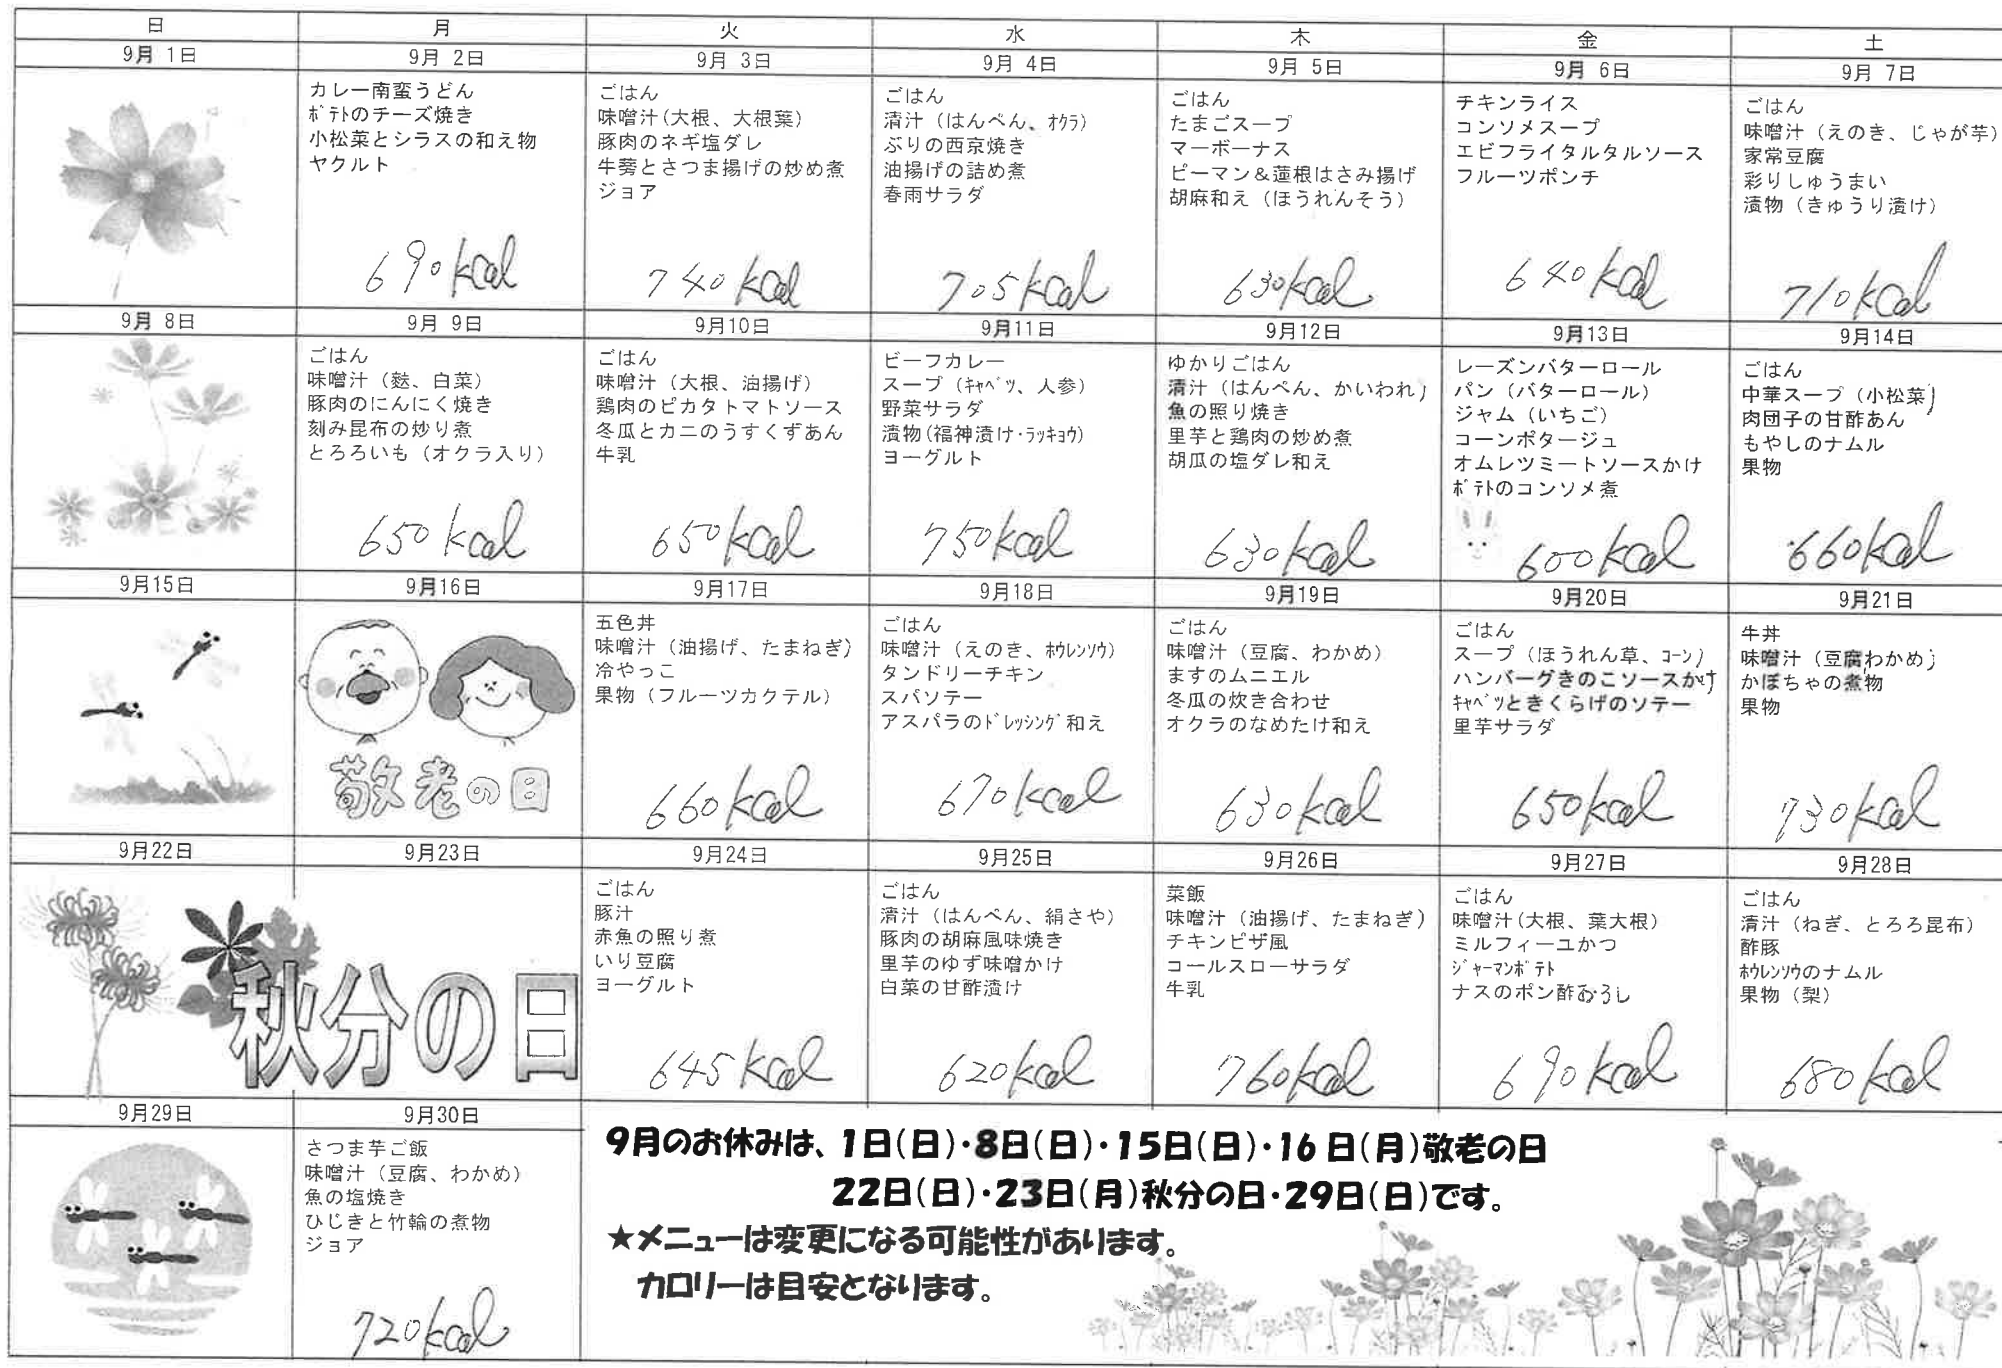 日
月
火
水
木
金
土
9月 1日
9月 2日
9月 3日
9月 4日
9月 5日
9月 6日
9月 7日
カレー南蛮うどん
ﾎﾟﾃﾄのチーズ焼き
小松菜とシラスの和え物
ヤクルト
690kcal
ごはん
味噌汁(大根、大根葉)
豚肉のネギ塩ダレ
牛蒡とさつま揚げの炒め煮
ジョア
740kcal
ごはん
清汁（はんぺん、ｵｸﾗ）
ぶりの西京焼き
油揚げの詰め煮
春雨サラダ
705kcal
ごはん
たまごスープ
マーボーナス
ピーマン＆蓮根はさみ揚げ
胡麻和え（ほうれんそう）
630kcal
チキンライス
コンソメスープ
エビフライタルタルソース
フルーツポンチ
640kcal
ごはん
味噌汁（えのき、じゃが芋）
家常豆腐
彩りしゅうまい
漬物（きゅうり漬け）
710kcal
9月 8日
9月 9日
9月10日
9月11日
9月12日
9月13日
9月14日
ごはん
味噌汁（麩、白菜）
豚肉のにんにく焼き
刻み昆布の炒り煮
とろろいも（オクラ入り）
650kcal
ごはん
味噌汁（大根、油揚げ）
鶏肉のピカタトマトソース
冬瓜とカニのうすくずあん
牛乳
650kcal
ビーフカレー
スープ（ｷｬﾍﾞﾂ、人参）
野菜サラダ
漬物(福神漬け･ﾗｯｷｮｳ)
ヨーグルト
750kcal
ゆかりごはん
清汁（はんぺん、かいわれ）
魚の照り焼き
里芋と鶏肉の炒め煮
胡瓜の塩ダレ和え
630kcal
レーズンバターロール
パン（バターロール）
ジャム（いちご）
コーンポタージュ
オムレツミートソースかけ
ﾎﾟﾃﾄのコンソメ煮
600kcal
ごはん
中華スープ（小松菜）
肉団子の甘酢あん
もやしのナムル
果物
660kcal
9月15日
9月16日
9月17日
9月18日
9月19日
9月20日
9月21日
敬老の日
五色丼
味噌汁（油揚げ、たまねぎ）
冷やっこ
果物（フルーツカクテル）
660kcal
ごはん
味噌汁（えのき、ﾎｳﾚﾝｿｳ）
タンドリーチキン
スパソテー
アスパラのﾄﾞﾚｯｼﾝｸﾞ和え
670kcal
ごはん
味噌汁（豆腐、わかめ）
ますのムニエル
冬瓜の炊き合わせ
オクラのなめたけ和え
630kcal
ごはん
スープ（ほうれん草、ｺｰﾝ）
ハンバーグきのこソースかけ
ｷｬﾍﾞﾂときくらげのソテー
里芋サラダ
650kcal
牛丼
味噌汁（豆腐わかめ）
かぼちゃの煮物
果物
730kcal
9月22日
9月23日
9月24日
9月25日
9月26日
9月27日
9月28日
秋分の日
ごはん
豚汁
赤魚の照り煮
いり豆腐
ヨーグルト
645kcal
ごはん
清汁（はんぺん、絹さや）
豚肉の胡麻風味焼き
里芋のゆず味噌かけ
白菜の甘酢漬け
620kcal
菜飯
味噌汁（油揚げ、たまねぎ）
チキンピザ風
コールスローサラダ
牛乳
760kcal
ごはん
味噌汁(大根、葉大根)
ミルフィーユかつ
ｼﾞｬｰﾏﾝﾎﾟﾃﾄ
ナスのポン酢おろし
690kcal
ごはん
清汁（ねぎ、とろろ昆布）
酢豚
ﾎｳﾚﾝｿｳのナムル
果物（梨）
680kcal
9月29日
9月30日
さつま芋ご飯
味噌汁（豆腐、わかめ）
魚の塩焼き
ひじきと竹輪の煮物
ジョア
720kcal
9月のお休みは、1日(日)･8日(日)･15日(日)･16日(月)敬老の日
22日(日)･23日(月)秋分の日･29日(日)です。
★メニューは変更になる可能性があります。
カロリーは目安となります。